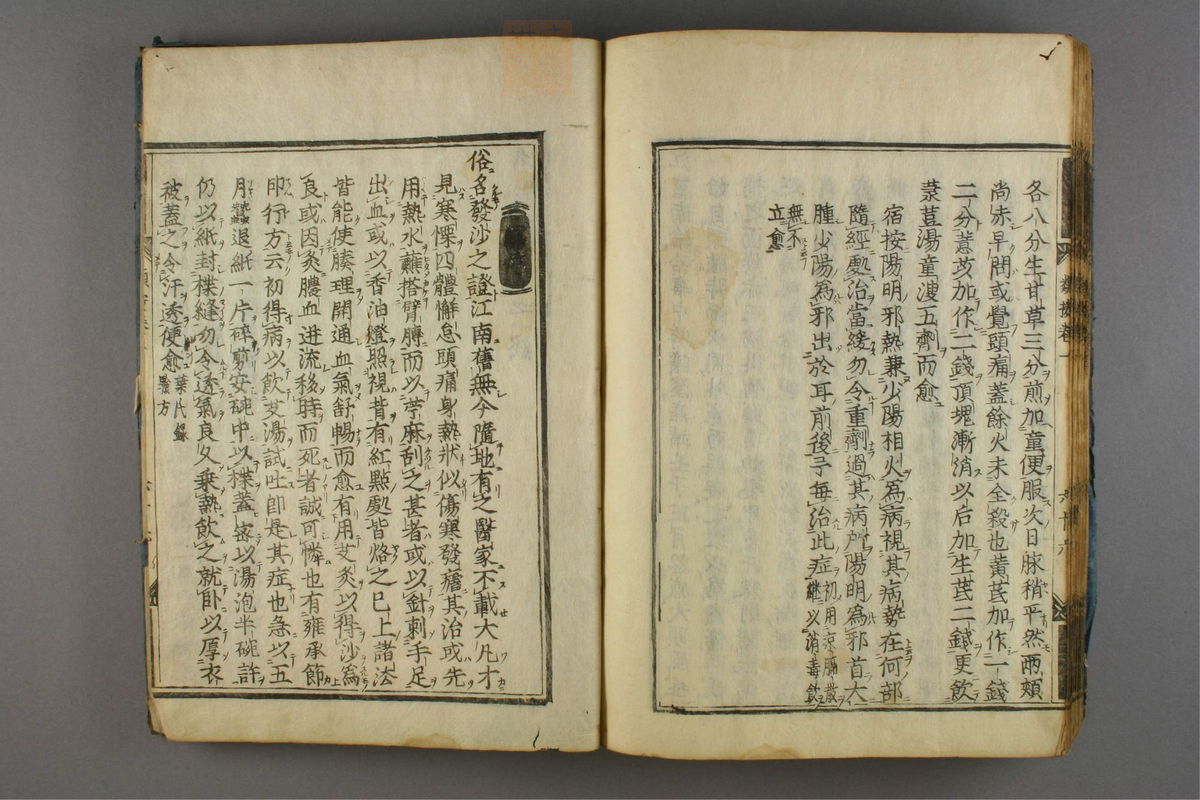 各八分生甘草三分煎加童便服次日脉稍平然兩頰
尚赤早間或覺頭痛蓋餘火未全殺也黃芪加作一錢
二分薏苡加作二錢頂塊漸消以后加生芪二錢更飲
䒷荳湯童溲五劑而愈
宿按陽明邪熱兼少陽相火爲病視其病勢在何部
隨經處治當緩勿令重劑過其病所陽明爲邪首大
腫少陽爲邪出於耳前後予每治此症初用凉膈散繼以消毒飲
無不立愈
俗名發沙之證江南舊無今隨地有之醫家不載大凡才
見寒慄四體懈怠頭痛身熱狀似傷寒發瘧其治或先
用熱水蘸搭臂膊而以苧麻刮之甚者或以針刺手足
出血或以香油燈照視背有紅點處皆烙之已上諸法
皆能使腠理開通血氣舒暢而愈有用艾灸以得沙爲
良或因灸膿血迸流移時而死者誠可憐也有雍承節
印行方云初得病以飲艾湯試吐即是其症也急以五
月蠶退紙一片碎剪安碗中以楪蓋 以湯泡半碗許
仍以紙封楪縫勿令透氣良久乗熱飲之就卧以厚衣
被蓋之令汗透便愈葉氏錄驗方